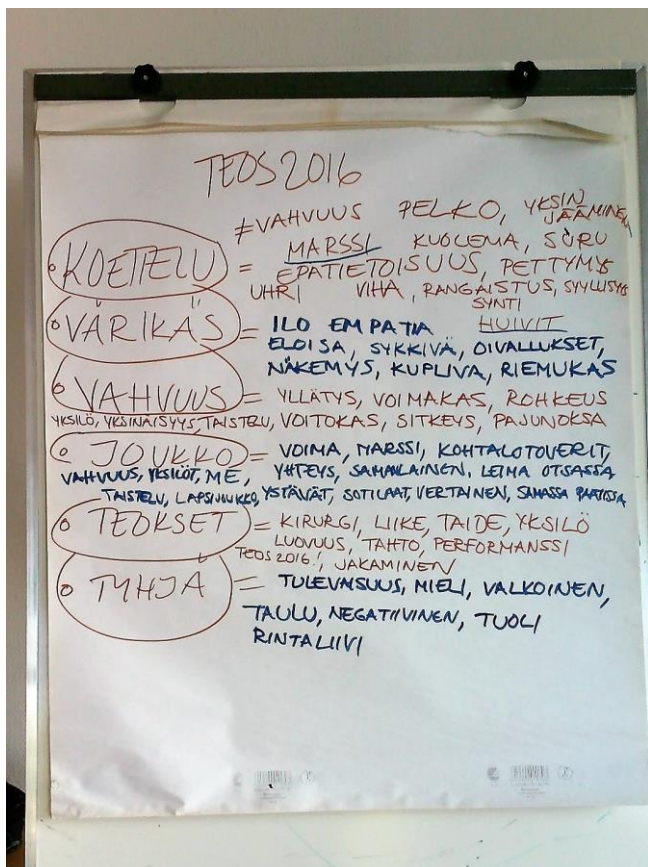 TEOS 2016
≠VAHVUUS PELKO, YKSIN JÄÄMINEN
MARSSI KUOLEMA, SURU
KOETTELU = EPÄTIETOISUUS, PETTYMYS
UHRI VIHA, RANGAISTUS, SYYLLISYYS
SYNTI
VÄRIKÄS = ILO EMPATIA HUIVIT
ELOISA, SYKKIVÄ, OIVALLUKSET,
NÄKEMYS, KUPLIVA, RIEMUKAS
VAHVUUS = YLLÄTYS, VOIMAKAS, ROHKEUS
YKSILÖ, YKSINÄISYYS, TAISTELU, VOITOKAS, SITKEYS, PAJUNOKSA
JOUKKO = VOIMA, MARSSI, KOHTALOTOVERIT,
VAHVUUS, YKSILÖT, ME, YHTEYS, SAMANLAINEN, LEIMA OTSASSA
TAISTELU, LAPSIJOUKKO, YSTÄVÄT, SOTILAAT, VERTAINEN, SAMASSA
TEOKSET = KIRURGI, LIIKE, TAIDE, YKSILÖ
LUOVUUS, TAHTO, PERFORMANSSI
TEOS 2016!, JAKAMINEN
TYHJÄ = TULEVAISUUS, MIELI, VALKOINEN,
TAULU, NEGATIIVINEN, TUOLI
RINTALIIVI